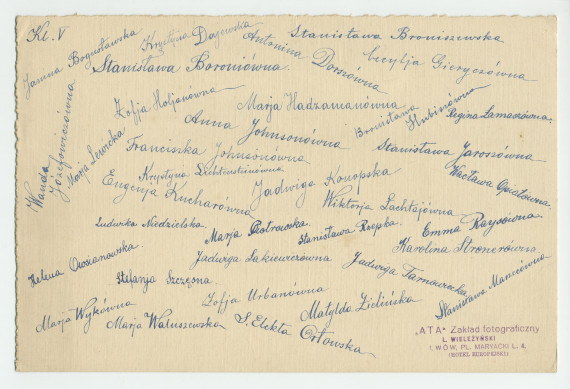 Kl. V
Janina Bogusławska
Krystyna Dajewska
Antonina Dorszówna
Stanisława Broniszewska
Stanisława Boroniówna
Cecylja Gieryczówna
Zofja Holjanówna
Marja Hadzamanówna
Bronisława Hubisnówna
Regina Lamasówna
Anna Johnsonówna
Wanda Józefowiczówna
Marja Lewicka
Franciszka Johnsonówna
Stanisława Jaroszówna
Krystyna Lichtensteinówna
Wacława Opiatowna
Eugenja Kucharówna
Jadwiga Konopska
Wiktorja Lachtajówna
Ludwika Niedzielska
Marja Piotrowska
Stanisława Rzepka
Emma Raysówna
Karolina Stronerówna
Helena Owsianowska
Jadwiga Sakiewiczówna
Jadwiga Tarnawicka
Stefanja Szczęsna
Stanisława Mancówna
Zofja Urbanówna
Marja Wykówna
Marja Waluszewska
Matylda Zielińska
S. Elekta Orłowska
„ATA" Zakład fotograficzny
L. WIELEŻYŃSKI
LWÓW, PL. MARYACKI L. 4.
(HOTEL EUROPEJSKI)